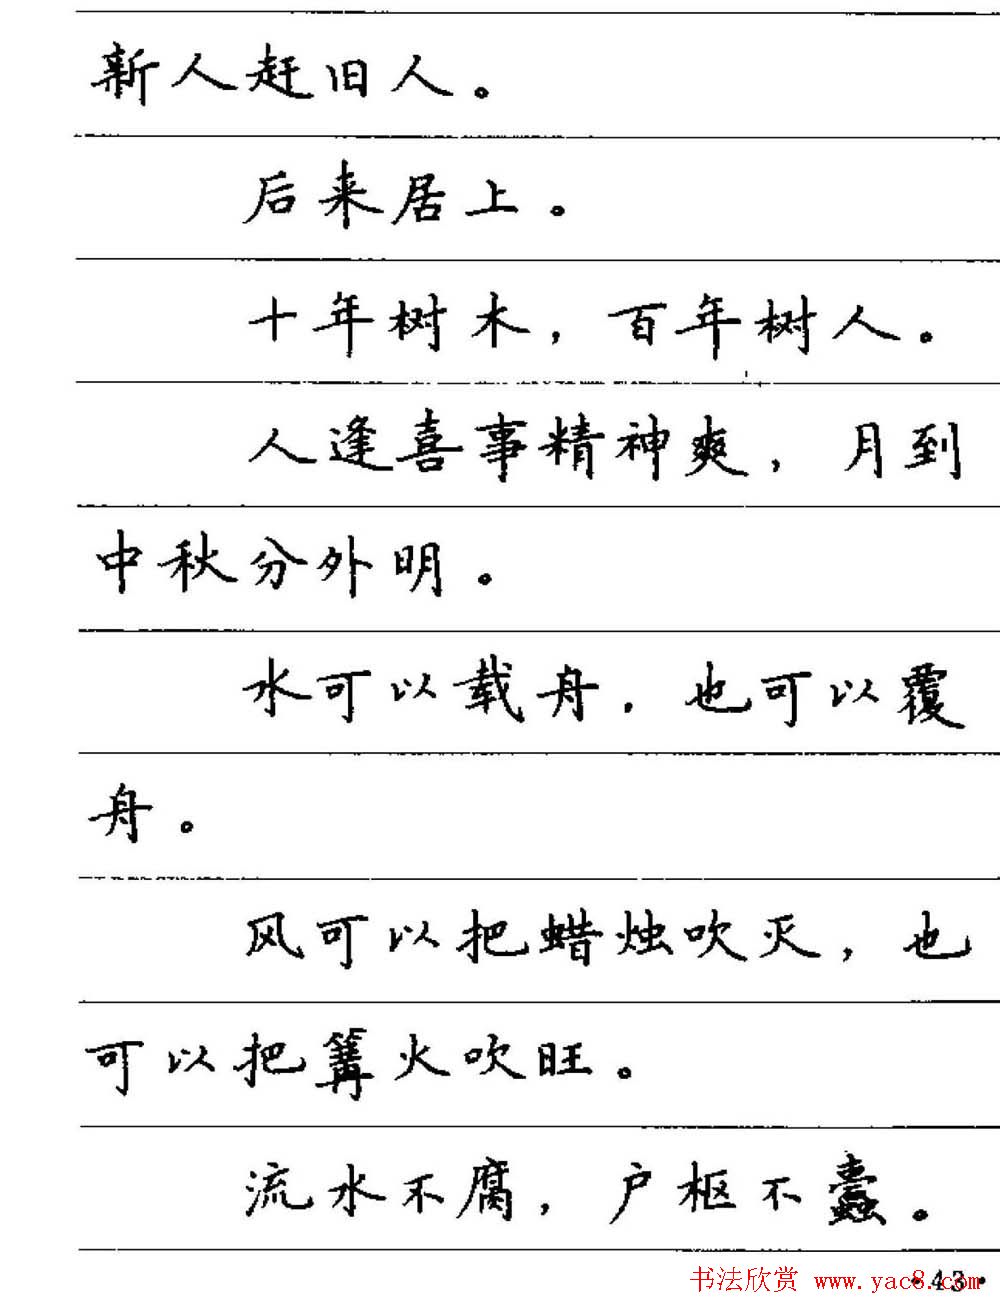 新人赶旧人。
后来居上。
十年树木，百年树人。
人逢喜事精神爽，月到
中秋分外明。
水可以载舟，也可以覆
舟。
风可以把蜡烛吹灭，也
可以把篝火吹旺。
流水不腐，户枢不蠹。
·43·
书法欣赏 www.yac8.com